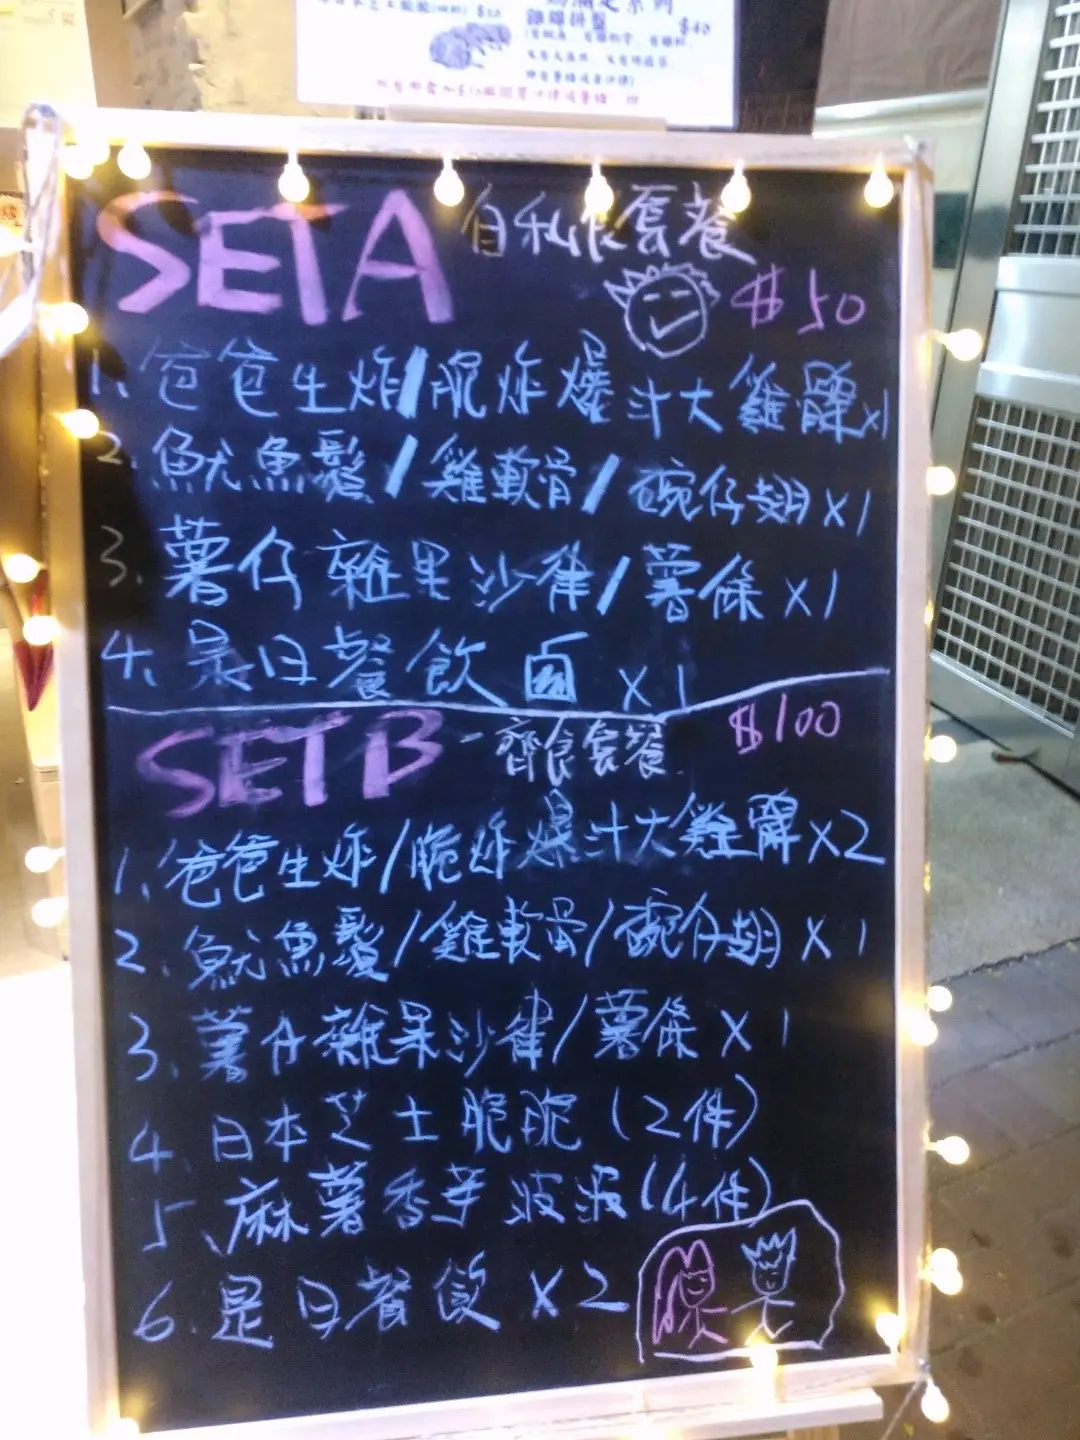 $20
系列
雜錦拼盤
$40
SET A 自私食套餐
$50
1. 爸爸生炸/脆炸爆汁大雞髀x1
2. 魷魚鬚/雞軟骨/碗仔翅x1
3. 薯仔雜果沙律/薯條x1
4. 是日餐飲 x1
SET B - 齊食套餐 $100
1. 爸爸生炸/脆炸爆汁大雞髀x2
2. 魷魚鬚/雞軟骨/碗仔翅x1
3. 薯仔雜果沙律/薯條x1
4. 日本芝士脆脆(2件)
5. 麻薯香芋波波(4件)
6. 是日餐飲x2